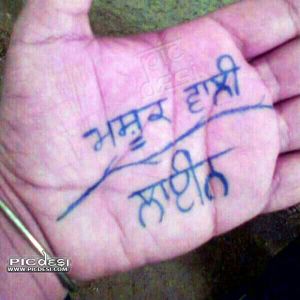 ਮਸ਼ੂਕ ਵਾਲੀ
ਲਾਈਨ
PICDESI
WWW.PICDESI.COM